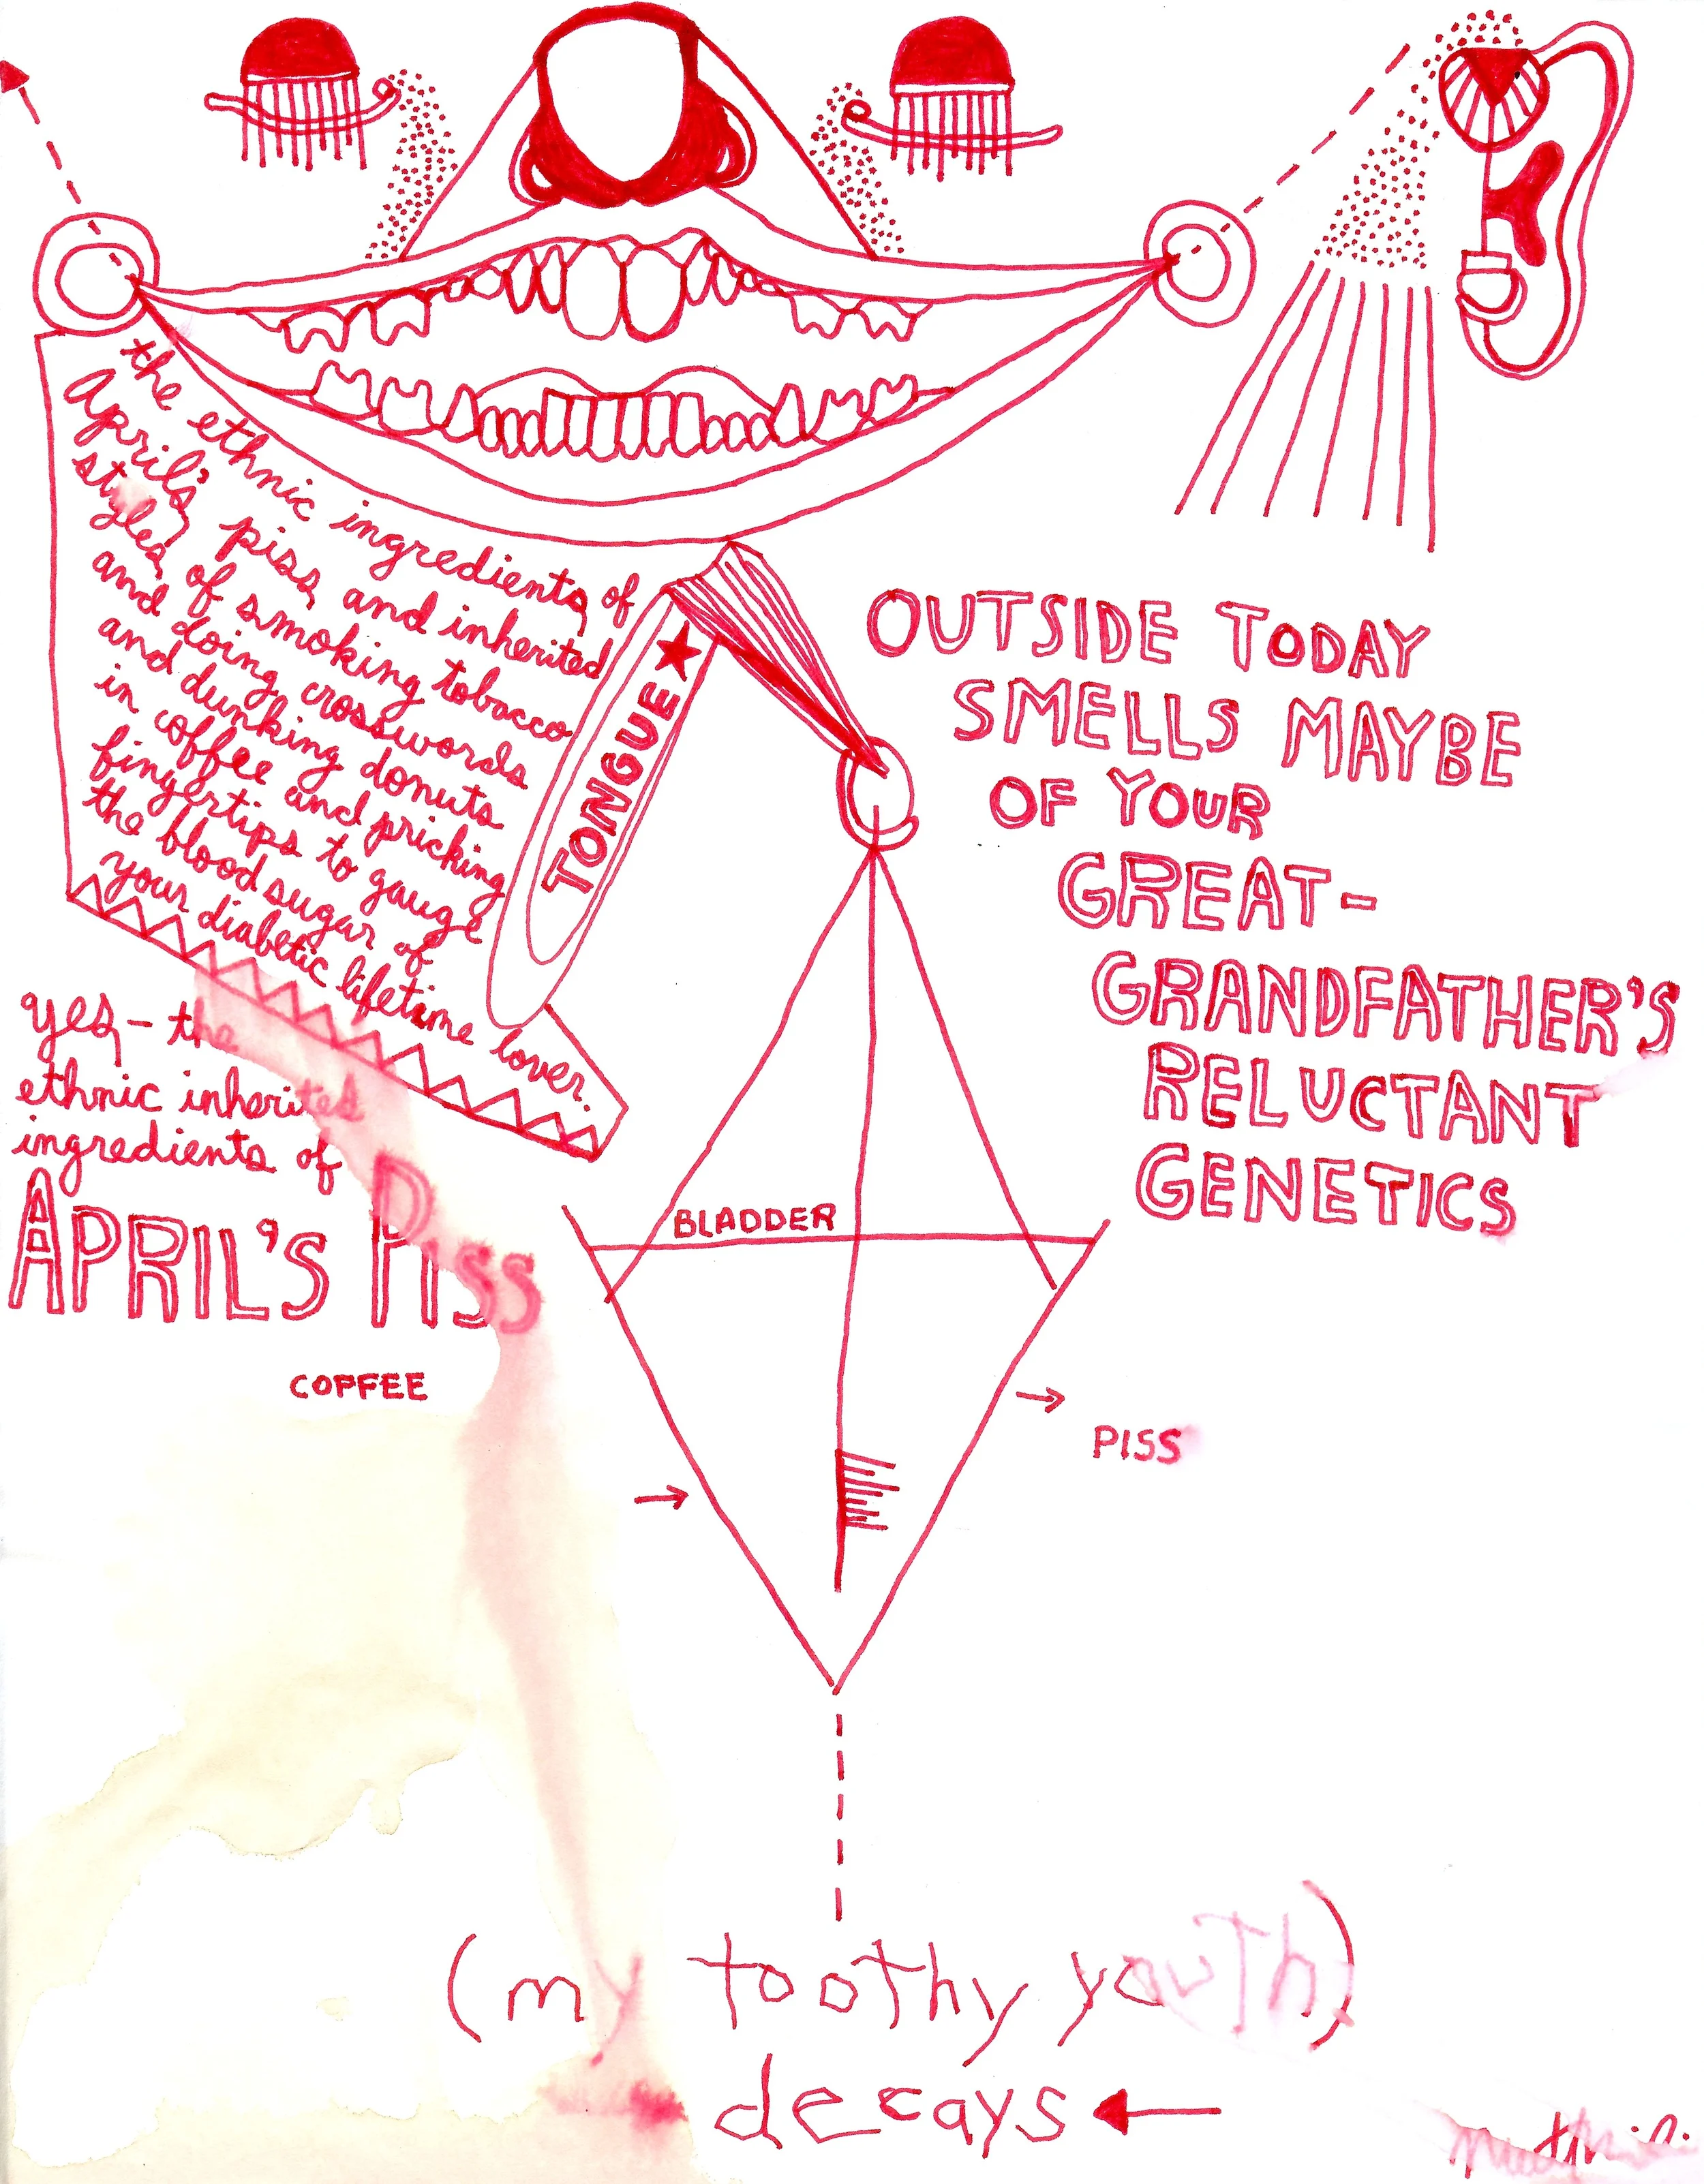 the ethnic ingredients of
April's piss and inherited
styles of smoking tobacco
and doing crosswords
and dunking donuts
in coffee and pricking
fingertips to gauge
the blood sugar of
your diabetic lifetime lover.
TONGUE
OUTSIDE TODAY
SMELLS MAYBE
OF YOUR
GREAT-
GRANDFATHER'S
RELUCTANT
GENETICS
yes - the
ethnic inherited
ingredients of
APRIL'S PISS
BLADDER
COFFEE
PISS
(my toothy youth)
decays